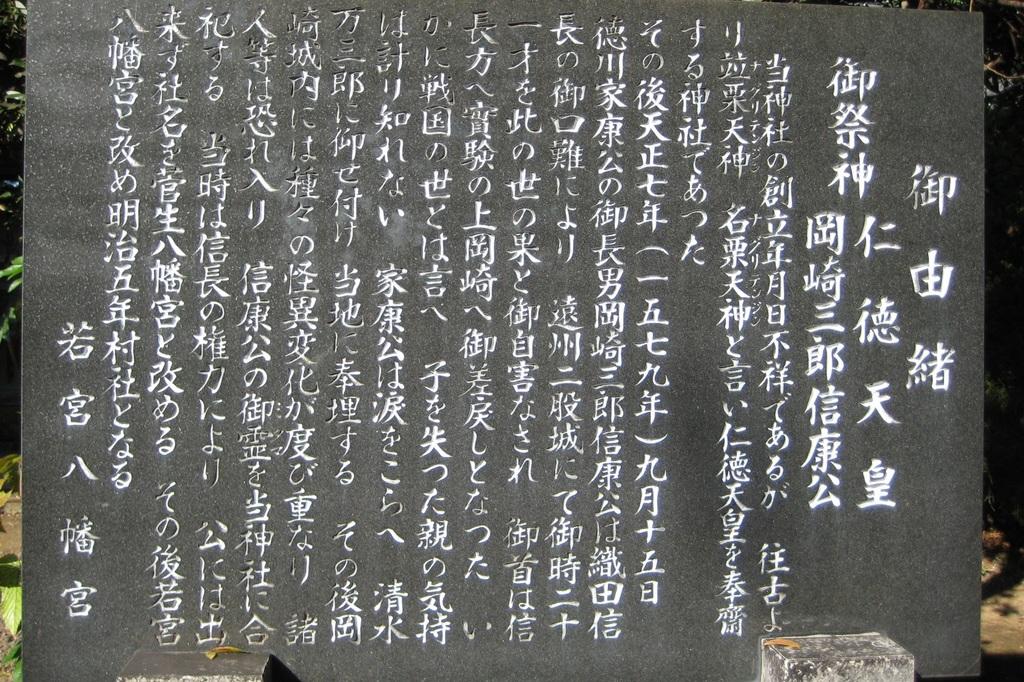 御由緒
御祭神 仁徳天皇
岡崎三郎信康公
当神社の創立年月日不祥であるが 往古よ
り竝栗天神 名栗天神と言い仁徳天皇を奉齋
ナグリテンジン ナグリテンジン
する神社であつた
その後天正七年(一五七九年)九月十五日
徳川家康公の御長男岡崎三郎信康公は織田信
長の御口難により 遠州二股城にて御時二十
一才を此の世の果と御自害なされ 御首は信
長方へ實験の上岡崎へ御差戻しとなつた い
かに戦国の世とは言へ 子を失つた親の気持
は計り知れない 家康公は涙をこらへ 清水
万三郎に仰せ付け 当地に奉埋する その後岡
崎城内には種々の怪異変化が度び重なり 諸
人等は恐れ入り 信康公の御霊を当神社に合
祀する 当時は信長の権力により 公には出
来ず社名を菅生八幡宮と改める その後若宮
八幡宮と改め明治五年村社となる
若宮八幡宮